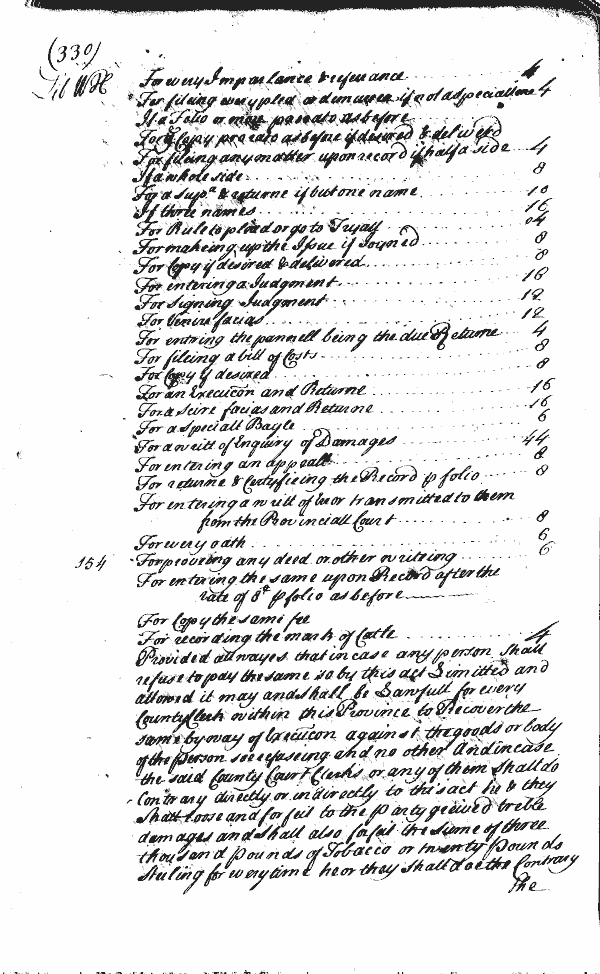 (330)
Lib WH
For every Imparlance & referance 4
For fileing every plea or demurrer if not a speciall one 4
If a Folio or more pro rato as before
For Copy pro rato as before if desired & delivered
For fileing any matter upon record if half a side 4
If a whole side 8
For a supa & returne if but one name 10
If three names 16
For Rule to plead or go to Tryall 04
For makeing up the Issue if Joyned 8
For Copy if desired & delivered 8
For entering a Judgment 16
For signing Judgment 12
For Venire facias 12
For entring the pannell being the due Returne 4
For fileing a bill of Costs 8
For Copy if desired 8
For an Execucon and Returne 16
For a scire facias and Returne 16
For a Speciall Bayle 6
For a writt of Enquiry of Damages 44
For entering an appeall 8
For returne & Certifieing the Record p folio 8
For entering a writt of Error transmitted to them
from the Provinciall Court 8
For every oath 6
154 For proveing any deed or other writeing 6
For entering the same upon Record after the
rate of 8d p folio as before
For Copy the same fee
For recording the mark of Catle 4
Provided allwayes that in case any person shall
refuse to pay the same so by this act Limitted and
allowed it may and shall be Lawfull for every
County Clerk within this Province to Recover the
same by way of Execucon against the goods or body
of the person soe refuseing and no other And in case
the said County Court Clerks or any of them shall do
Contrary directly or indirectly to this act he & they
shall loose and forfeit to the party greived treble
damages and shall also forfeit the sume of three
thousand pounds of Tobacco or twenty pounds
sterling for every time he or they shall doe the Contrary
The